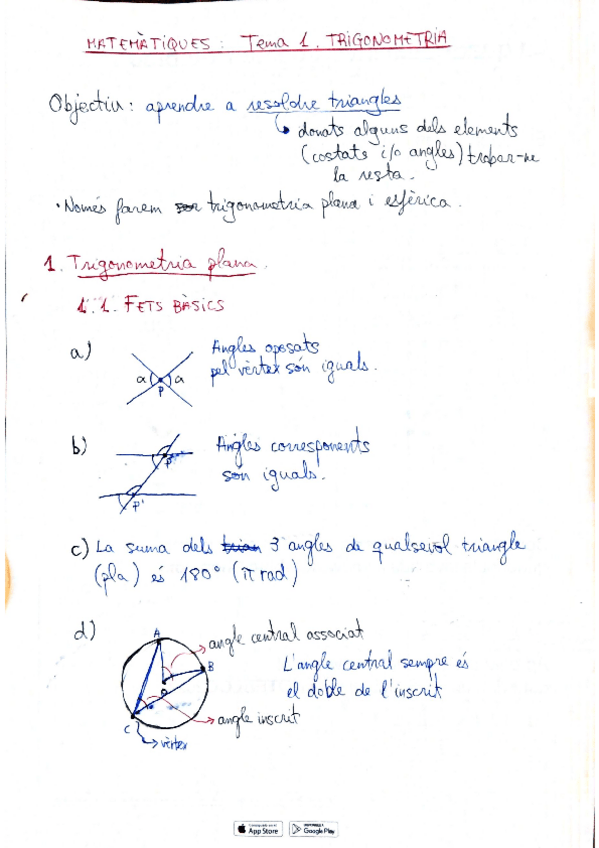 MATEMÀTIQUES: Tema 1. TRIGONOMETRIA
Objectiu: aprendre a resoldre triangles
donats alguns dels elements
(costats i/o angles) trobar-ne
la resta.
· Només farem trigonometria plana i esfèrica.
1. Trigonometria plana.
1.1. FETS BÀSICS
a)
Angles oposats
pel vèrtex són iguals.
α α
P
b)
Angles corresponents
són iguals.
P
P'
c) La suma dels 3 angles de qualsevol triangle
(pla) és 180° (π rad)
d)
A
angle central associat
B
L'angle central sempre és
el doble de l'inscrit
O
angle inscrit
C
vèrtex
App Store
Google Play